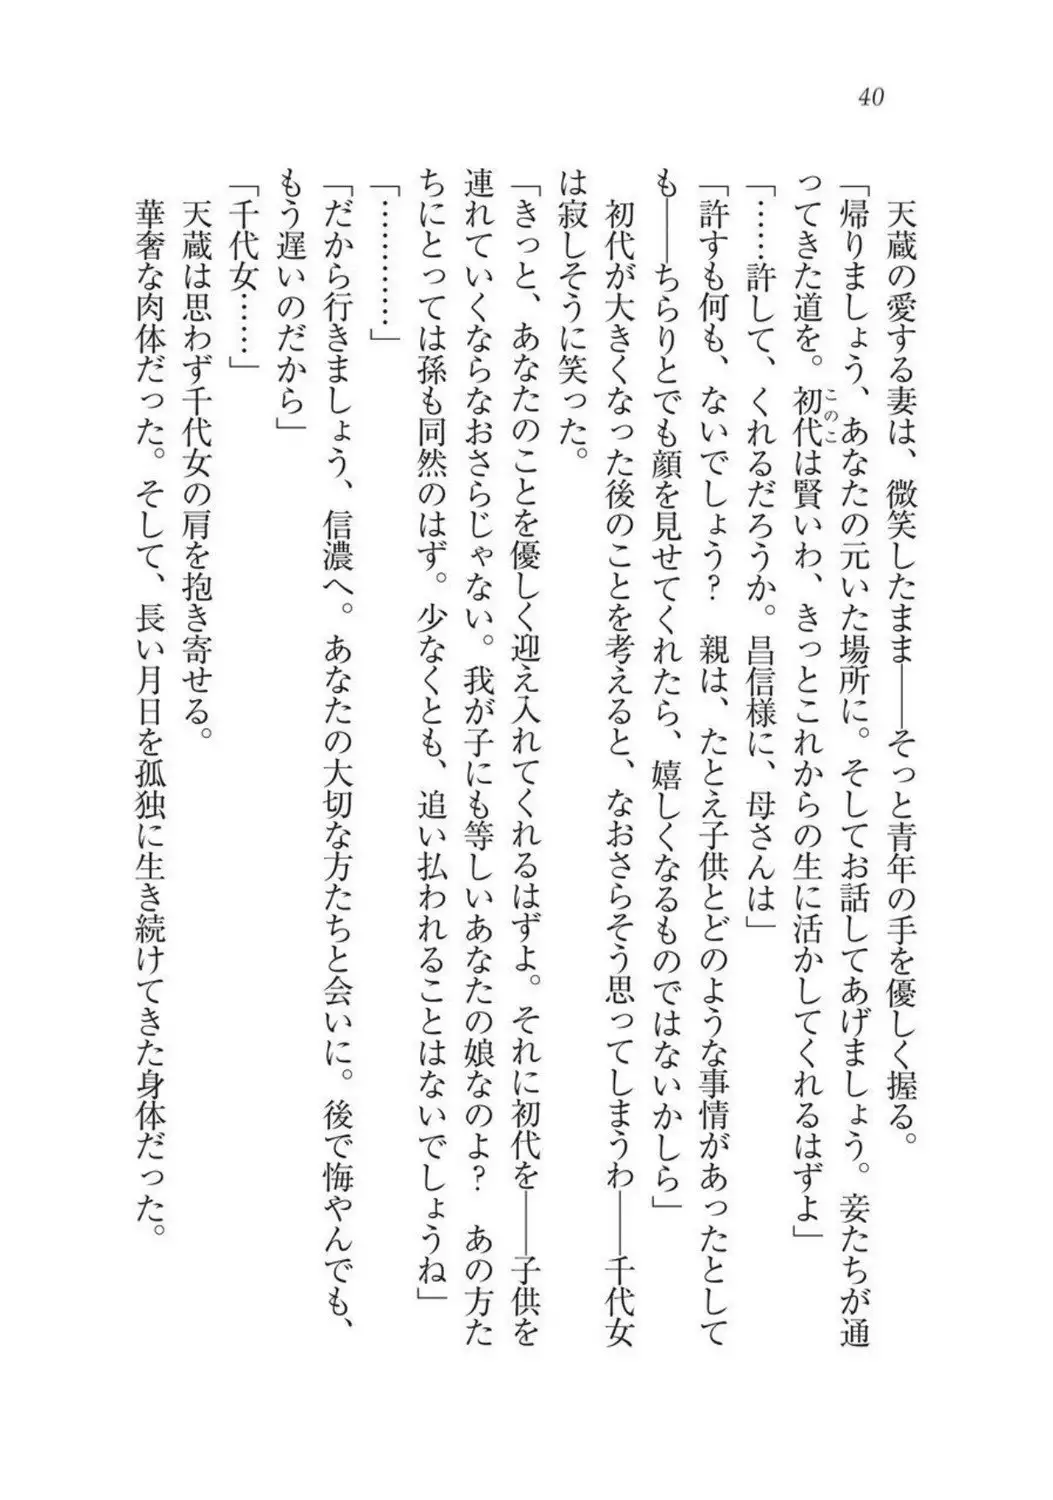 40
　天蔵の愛する妻は、微笑したまま――そっと青年の手を優しく握る。
「帰りましょう、あなたの元いた場所に。そしてお話してあげましょう。妾たちが通
ってきた道を。初代は賢いわ、きっとこれからの生に活かしてくれるはずよ」
このこ
「……許して、くれるだろうか。昌信様に、母さんは」
「許すも何も、ないでしょう？　親は、たとえ子供とどのような事情があったとして
も――ちらりとでも顔を見せてくれたら、嬉しくなるものではないかしら」
　初代が大きくなった後のことを考えると、なおさらそう思ってしまうわ――千代女
は寂しそうに笑った。
「きっと、あなたのことを優しく迎え入れてくれるはずよ。それに初代を――子供を
連れていくならなおさらじゃない。我が子にも等しいあなたの娘なのよ？　あの方た
ちにとっては孫も同然のはず。少なくとも、追い払われることはないでしょうね」
「…………」
「だから行きましょう、信濃へ。あなたの大切な方たちと会いに。後で悔やんでも、
もう遅いのだから」
「千代女……」
　天蔵は思わず千代女の肩を抱き寄せる。
　華奢な肉体だった。そして、長い月日を孤独に生き続けてきた身体だった。